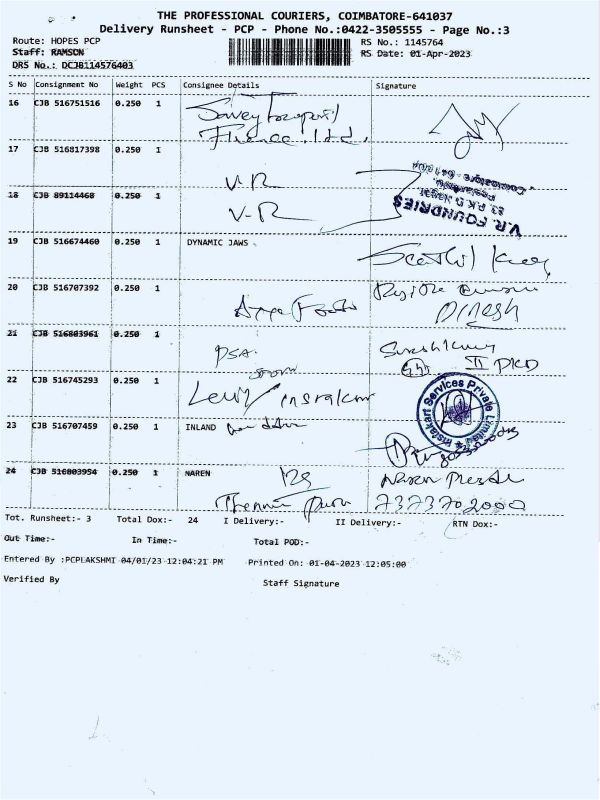 THE PROFESSIONAL COURIERS, COIMBATORE-641037
Delivery Runsheet - PCP - Phone No.:0422-3505555 - Page No.:3
Route: HOPES PCP
RS No.: 1145764
Staff: RAMSON
RS Date: 01-Apr-2023
DRS No.: DCJB114576403
S No Consignment No Weight PCS Consignee Details Signature
16 CJB 516751516 0.250 1
Finance. Ltd.
17 CJB 516817398 0.250 1 V-R
18 CJB 89114468 0.250 1 V-R
V.R. FOUNDRIES
19 CJB 516674460 0.250 1 DYNAMIC JAWS
20 CJB 516707392 0.250 1
Dinesh
21 CJB 516803961 0.250 1 DSA
22 CJB 516745293 0.250 1
Instakart Services Private Limited
23 CJB 516707459 0.250 1 INLAND
24 CJB 516803954 0.250 1 NAREN 129 Naren
7373702000
Tot. Runsheet:- 3 Total Dox:- 24 I Delivery:- II Delivery:- RTN Dox:-
Out Time:- In Time:- Total POD:-
Entered By :PCPLAKSHMI 04/01/23 12:04:21 PM Printed On: 01-04-2023 12:05:00
Verified By Staff Signature